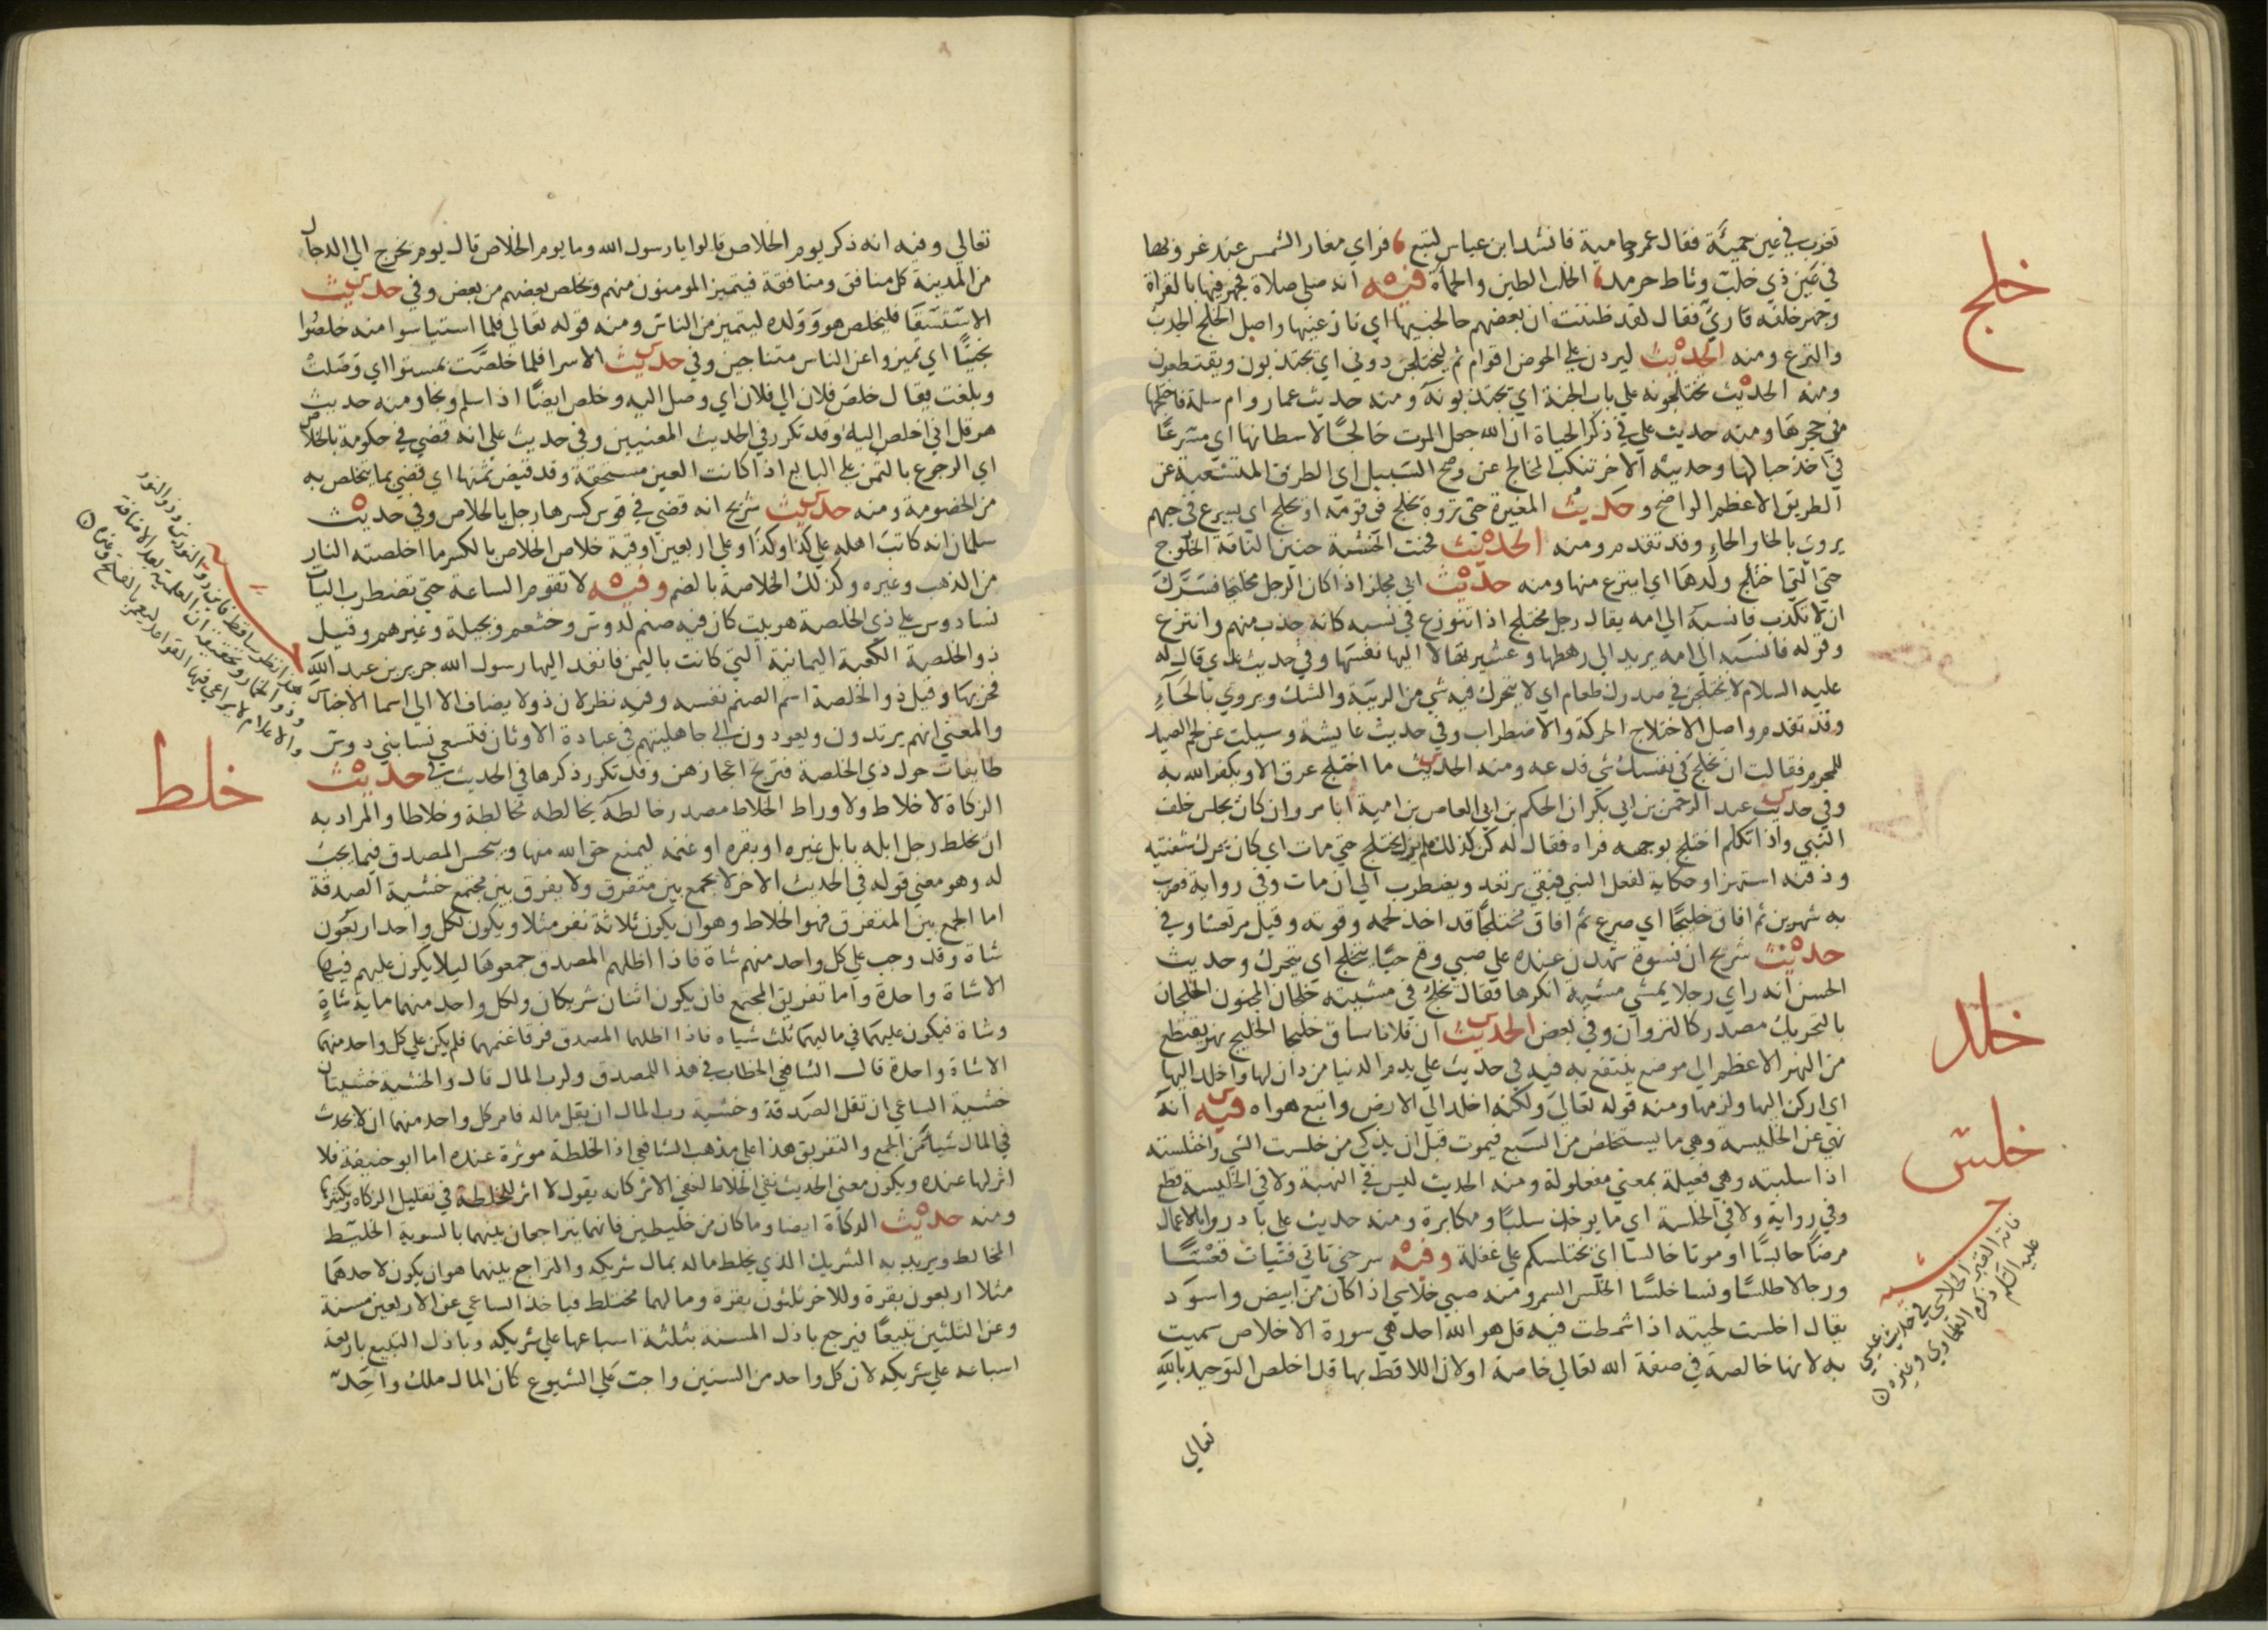 تغرب في عين حمئة فقال عمر حامية فانشد ابن عباس لتبع فراي مغار الشمس عند غروبها
في عين ذي خلب وثاط حرمد الخلب الطين والحمأة فيه انه صلي صلاة فجهر فيها بالقراة
وجهر خلفه قاريّ فقال لقد ظننت ان بعضهم خالجنيها اي نازعنيها واصل الخلج الجذب
والنزع ومنه الحديث ليردن علي الحوض اقوام ثم ليختلجن دوني اي يجتذبون ويقتطعون
ومنه الحديث يختلجونه علي باب الجنة اي يجتذبونه ومنه حديث عمار وام سلمة فاختلجها
من حجرها ومنه حديث علي في ذكر الحياة ان الله جعل الموت خالجًا لاسطانها اي مسرعًا
في اخذ حبالها وحديثه الاخر تنكب المخالج عن وضح السبيل اي الطرق المتشعبة عن
الطريق الاعظم الواضح وحديث المغيرة حتي تروه يخلج في قومه او يحلج اي يسرع في حبهم
يروي بالخا والحاء وقد تقدم ومنه الحديث فحنت الخشبة حنين الناقة الخلوج
هي التي اختلج ولدها اي انتزع منها ومنه حديث ابي مجلز اذا كان الرجل مختلجا فسرك
ان لا تكذب فانسبه الي امه يقال رجل مختلج اذا تنوزع في نسبه كانه جذب منهم وانتزع
وقوله فانسبه الي امه يريد الي رهطها وعشيرتها لا اليها نفسها وفي حديث عدي قال له
عليه السلام لا يختلجن في صدرك طعام اي لا يتحرك فيه شي من الريبة والشك ويروي بالحاء
وقد تقدم واصل الاختلاج الحركة والاضطراب وفي حديث عايشة وسيلت عن لحم الصيد
للمحرم فقالت ان يخلج في نفسك شي فدعه ومنه الحديث ما اختلج عرق الا ويكفر الله به
وفي حديث عبد الرحمن بن ابي بكر ان الحكم بن ابي العاص بن امية ابا مروان كان يجلس خلف
النبي واذا تكلم اختلج بوجهه فراه فقال له كن كذلك فلم يزل يختلج حتي مات اي كان يحرك شفتيه
وذقنه استهزا وحكاية لفعل النبي فبقي يرتعد ويضطرب الي ان مات وفي رواية فضرب
به شهرين ثم افاق خليجًا اي صرع ثم افاق مختلجًا قد اخذ لحمه وقوته وقيل مرتعشا وفي
حديث شريح ان نسوة شهدن عنده علي صبي وقع حيًا يتخلج اي يتحرك وحديث
الحسن انه راي رجلا يمشي مشية انكرها فقال يخلج في مشيته خلجان المجنون الخلجان
بالتحريك مصدر كالنزوان وفي بعض الحديث ان فلانا ساق خليجا الخليج نهر يقتطع
من النهر الاعظم الي موضع ينتفع به فيه في حديث علي يذم الدنيا من دان لها واخلد اليها
اي اركن اليها ولزمها ومنه قوله تعالي ولكنه اخلد الي الارض واتبع هواه فيه انه
نهي عن الخليسة وهي ما يستخلص من السبع فيموت قبل ان يذكي من خلست الشي واختلسته
اذا سلبته وهي فعيلة بمعني مفعولة ومنه الحديث ليس في النهبة ولا في الخليسة قطع
وفي رواية ولا في الخلسة اي ما يوخذ سلبًا ومكابرة ومنه حديث علي بادروا بالاعمال
مرضًا حابسًا او موتا خالسا اي يختلسكم علي غفلة وفيه سر حتي تاتي فتيات قعسًا
ورجالا طلسًا ونسا خلسًا الخلس السمر ومنه صبي خلاسي اذا كان من ابيض واسود
يقال اخلست لحيته اذا شمطت فيه قل هو الله احد هي سورة الاخلاص سميت
به لانها خالصة في صفة الله تعالي خاصة او لان اللافظ بها قد اخلص التوحيد بالله
تعالي
خلج
خلد
خلس
تعالي وفيه انه ذكر يوم الخلاص قالوا يا رسول الله وما يوم الخلاص قال يوم يخرج الي الدجال
من المدينة كل منافق ومنافقة فيتميز المومنون منهم ويخلص بعضهم من بعض وفي حديث
الاستسقا فليخلص هو وولده ليتميز من الناس ومنه قوله تعالي فلما استياسوا منه خلصوا
نجيًا اي تميزوا عن الناس متناجين وفي حديث الاسرا فلما خلصت بمستوا اي وصلت
وبلغت يقال خلص فلان الي فلان اي وصل اليه وخلص ايضًا اذا سلم ونجا ومنه حديث
هرقل اني اخلص اليه وقد تكرر في الحديث المعنيين وفي حديث علي انه قضي في حكومة بالخلاص
اي الرجوع بالثمن علي البايع اذا كانت العين مستحقة وقد قبض ثمنها اي قضي بما يتخلص به
من الخصومة ومنه حديث شريح انه قضي في قوس كسرها رجل بالخلاص وفي حديث
سلمان انه كاتب اهله علي كذا وكذا وعلي اربعين اوقية خلاص الخلاص بالكسر ما اخلصته النار
من الذهب وغيره وكذلك الخلاصة بالضم وفيه لا تقوم الساعة حتي تضطرب اليات
نسا دوس علي ذي الخلصة هو بيت كان فيه صنم لدوس وخثعم وبجيلة وغيرهم وقيل
ذو الخلصة الكعبة اليمانية التي كانت باليمن فانفذ اليها رسول الله جرير بن عبد الله
فخربها وقيل ذو الخلصة اسم الصنم نفسه وفيه نظر لان ذو لا يضاف الا الي اسما الاجناس
والمعني انهم يرتدون ويعودون الي جاهليتهم في عبادة الاوثان فتسعي نسا بني دوس
طايفات حول ذي الخلصة فترتج اعجازهن وقد تكرر ذكرها في الحديث في حديث
الزكاة لا خلاط ولا وراط الخلاط مصدر خالطه يخالطه مخالطة وخلاطا والمراد به
ان يخلط رجل ابله بابل غيره او بقره او غنمه ليمنع حق الله منها ويبخس المصدق فيما يجب
له وهو معني قوله في الحديث الاخر لا يجمع بين متفرق ولا يفرق بين مجتمع خشية الصدقة
اما الجمع بين المتفرق فهو الخلاط وهو ان يكون ثلاثة نفر مثلا ويكون لكل واحد اربعون
شاة وقد وجب علي كل واحد منهم شاة فاذا اظلهم المصدق جمعوها ليلا يكون عليهم فيها
الا شاة واحدة واما تفريق المجتمع فان يكون اثنان شريكان ولكل واحد منهما ماية شاة
وشاة فيكون عليهما في ماليهما ثلث شياه فاذا اظلهما المصدق فرقا غنمهما فلم يكن علي كل واحد منهما
الا شاة واحدة قال الشافعي الخطاب في هذا للمصدق ولرب المال قال والخشية خشيتان
خشية الساعي ان تقل الصدقة وخشية رب المال ان يقل ماله فامر كل واحد منهما ان لا يحدث
في المال شيا من الجمع والتفريق هذا علي مذهب الشافعي اذ الخلطة موثرة عنده اما ابو حنيفة فلا
اثر لها عنده ويكون معني الحديث نفي الخلاط لنفي الاثر كانه يقول لا اثر للخلطة في تقليل الزكاه وتكثيرها
ومنه حديث الزكاة ايضا وما كان من خليطين فانهما يتراجعان بينهما بالسوية الخليط
المخالط ويريد به الشريك الذي يخلط ماله بمال شريكه والتراجع بينهما هو ان يكون لاحدهما
مثلا اربعون بقرة وللاخر ثلثون بقرة ومالهما مختلط فياخذ الساعي عن الاربعين مسنة
وعن الثلثين تبيعًا فيرجع باذل المسنة بثلثة اسباعها علي شريكه وباذل التبيع باربعة
اسباعه علي شريكه لان كل واحد من السنين واجب علي الشيوع كان المال ملك واحد
خلط